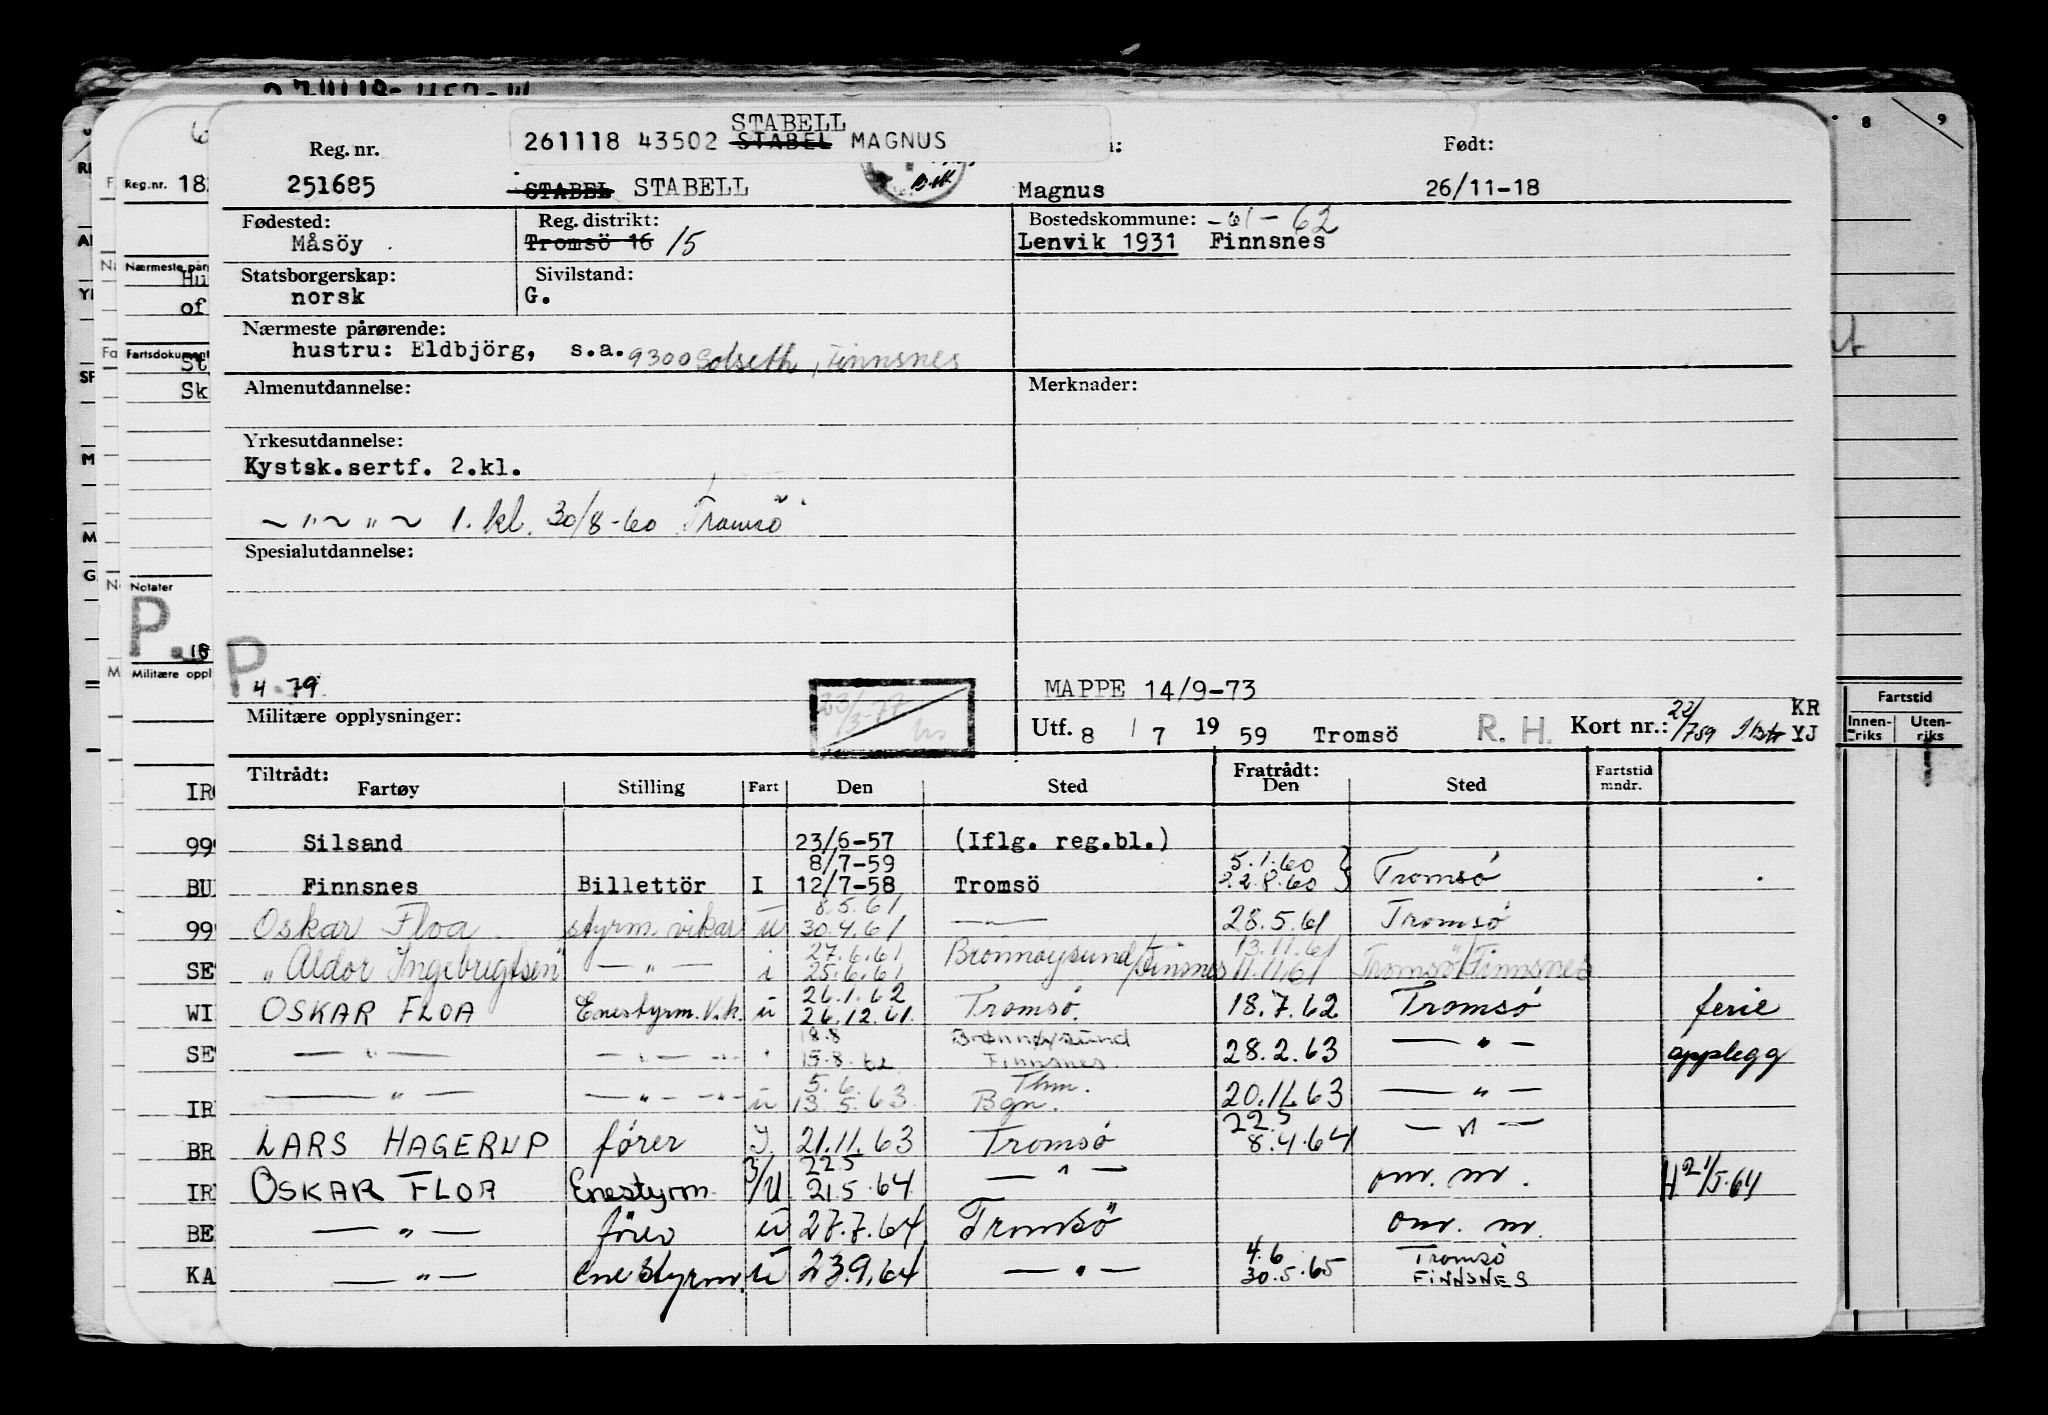 STABELL
261118 43502 STABEL MAGNUS
Reg. nr.
Født:
251685 STABEL STABELL Magnus 26/11-18
Fødested: Reg. distrikt: Bostedskommune: -61-62
Måsöy Tromsö 16 15 Lenvik 1931 Finnsnes
Statsborgerskap: Sivilstand:
norsk G.
Nærmeste pårørende:
hustru: Eldbjörg, s.a. 9300 Solseth, Finnsnes
Almenutdannelse: Merknader:
Yrkesutdannelse:
Kystsk.sertf. 2.kl.
~ " ~ " ~ 1. kl. 30/8-60 Tromsö
Spesialutdannelse:
P
4.79.
MAPPE 14/9-73
Militære opplysninger:
Utf. 8 / 7 19 59 Tromsö R. H. Kort nr.: 22/759 KR
YJ
Tiltrådt: Fratrådt:
Fartøy Stilling Fart Den Sted Den Sted Fartstid mndr.
Silsand 23/6-57 (Iflg. reg.bl.)
8/7-59 5.1.60
Finnsnes Billettör I 12/7-58 Tromsö 22.8.60 Tromsö
8.5.61
Oskar Floa styrm. vikar u 30.4.61 — " — 28.5.61 Tromsö
27.6.61 13.11.61
"Aldor Ingebrigtsen" — " — i 25.6.61 Brönnöysund/Finnsnes 11.11.61 Tromsö/Finnsnes
26.1.62
OSKAR FLOA Enestyrm. Vik. u 26.12.61 Tromsö. 18.7.62 Tromsö ferie
18.8 Brönnöysund
— " — — " — 15.8.62 Finnsnes. 28.2.63 — " — opplegg
5.6. Thm.
— " — — " — u 13.5.63 Bgn. 20.11.63 — " —
22.5
LARS HAGERUP fører I 21.11.63 Tromsö 8.4.64 — " —
22.5
OSKAR FLOA Enestyrm. 3/U 21.5.64 — " — om. m. H 21/5.64
— " — förer u 27.7.64 Tromsö om. m.
4.6 Tromsö
— " — enestyrm. u 23.9.64 — " — 30.5.65 FINNSNES
Reg.nr. 18
Nærmeste pår
Hu
of
Fartsdokument
St
Sk
Notater
P
Militære oppl
8 9
Fartstid
Innenriks Utenriks